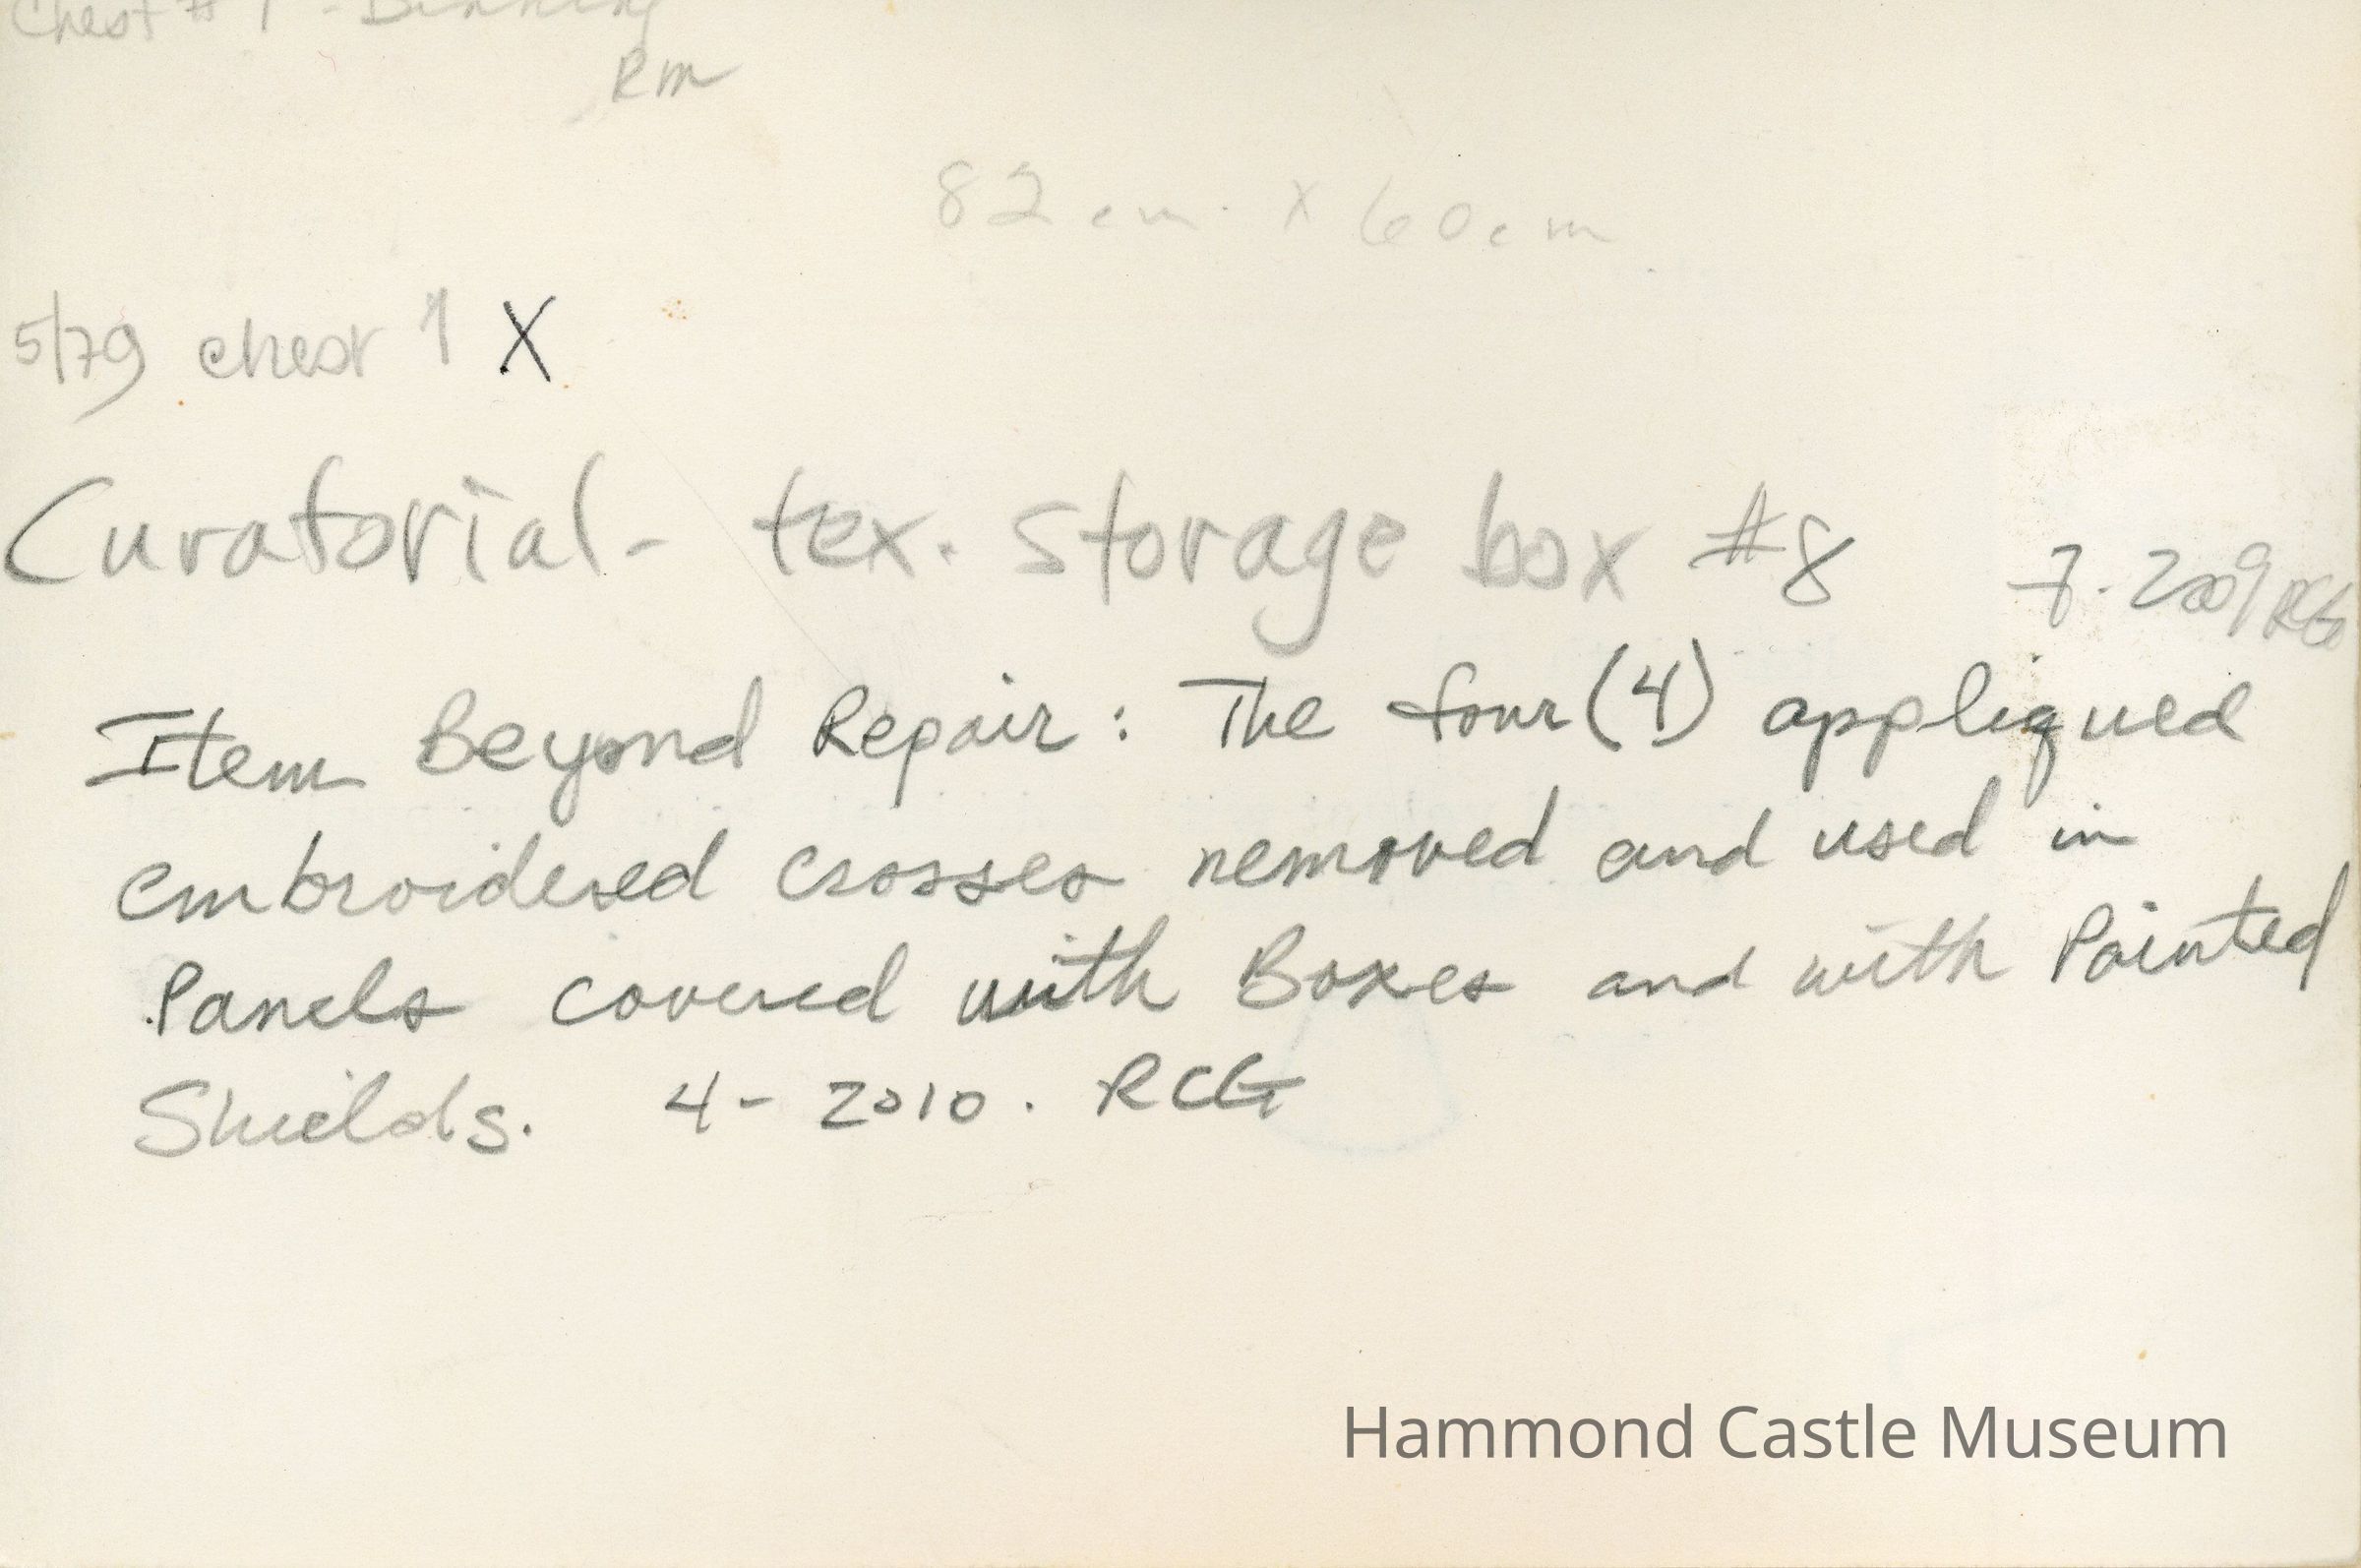 Chest # 1 - Dinning
Rm
82 cm. x 60cm
5/79 chest 1 X
Curatorial- tex. storage box #8 7. 2009 RCG
Item Beyond Repair: The four (4) appliqued
embroidered crosses removed and used in
Panels covered with Boxes and with Painted
Shields. 4- 2010. RCG
Hammond Castle Museum